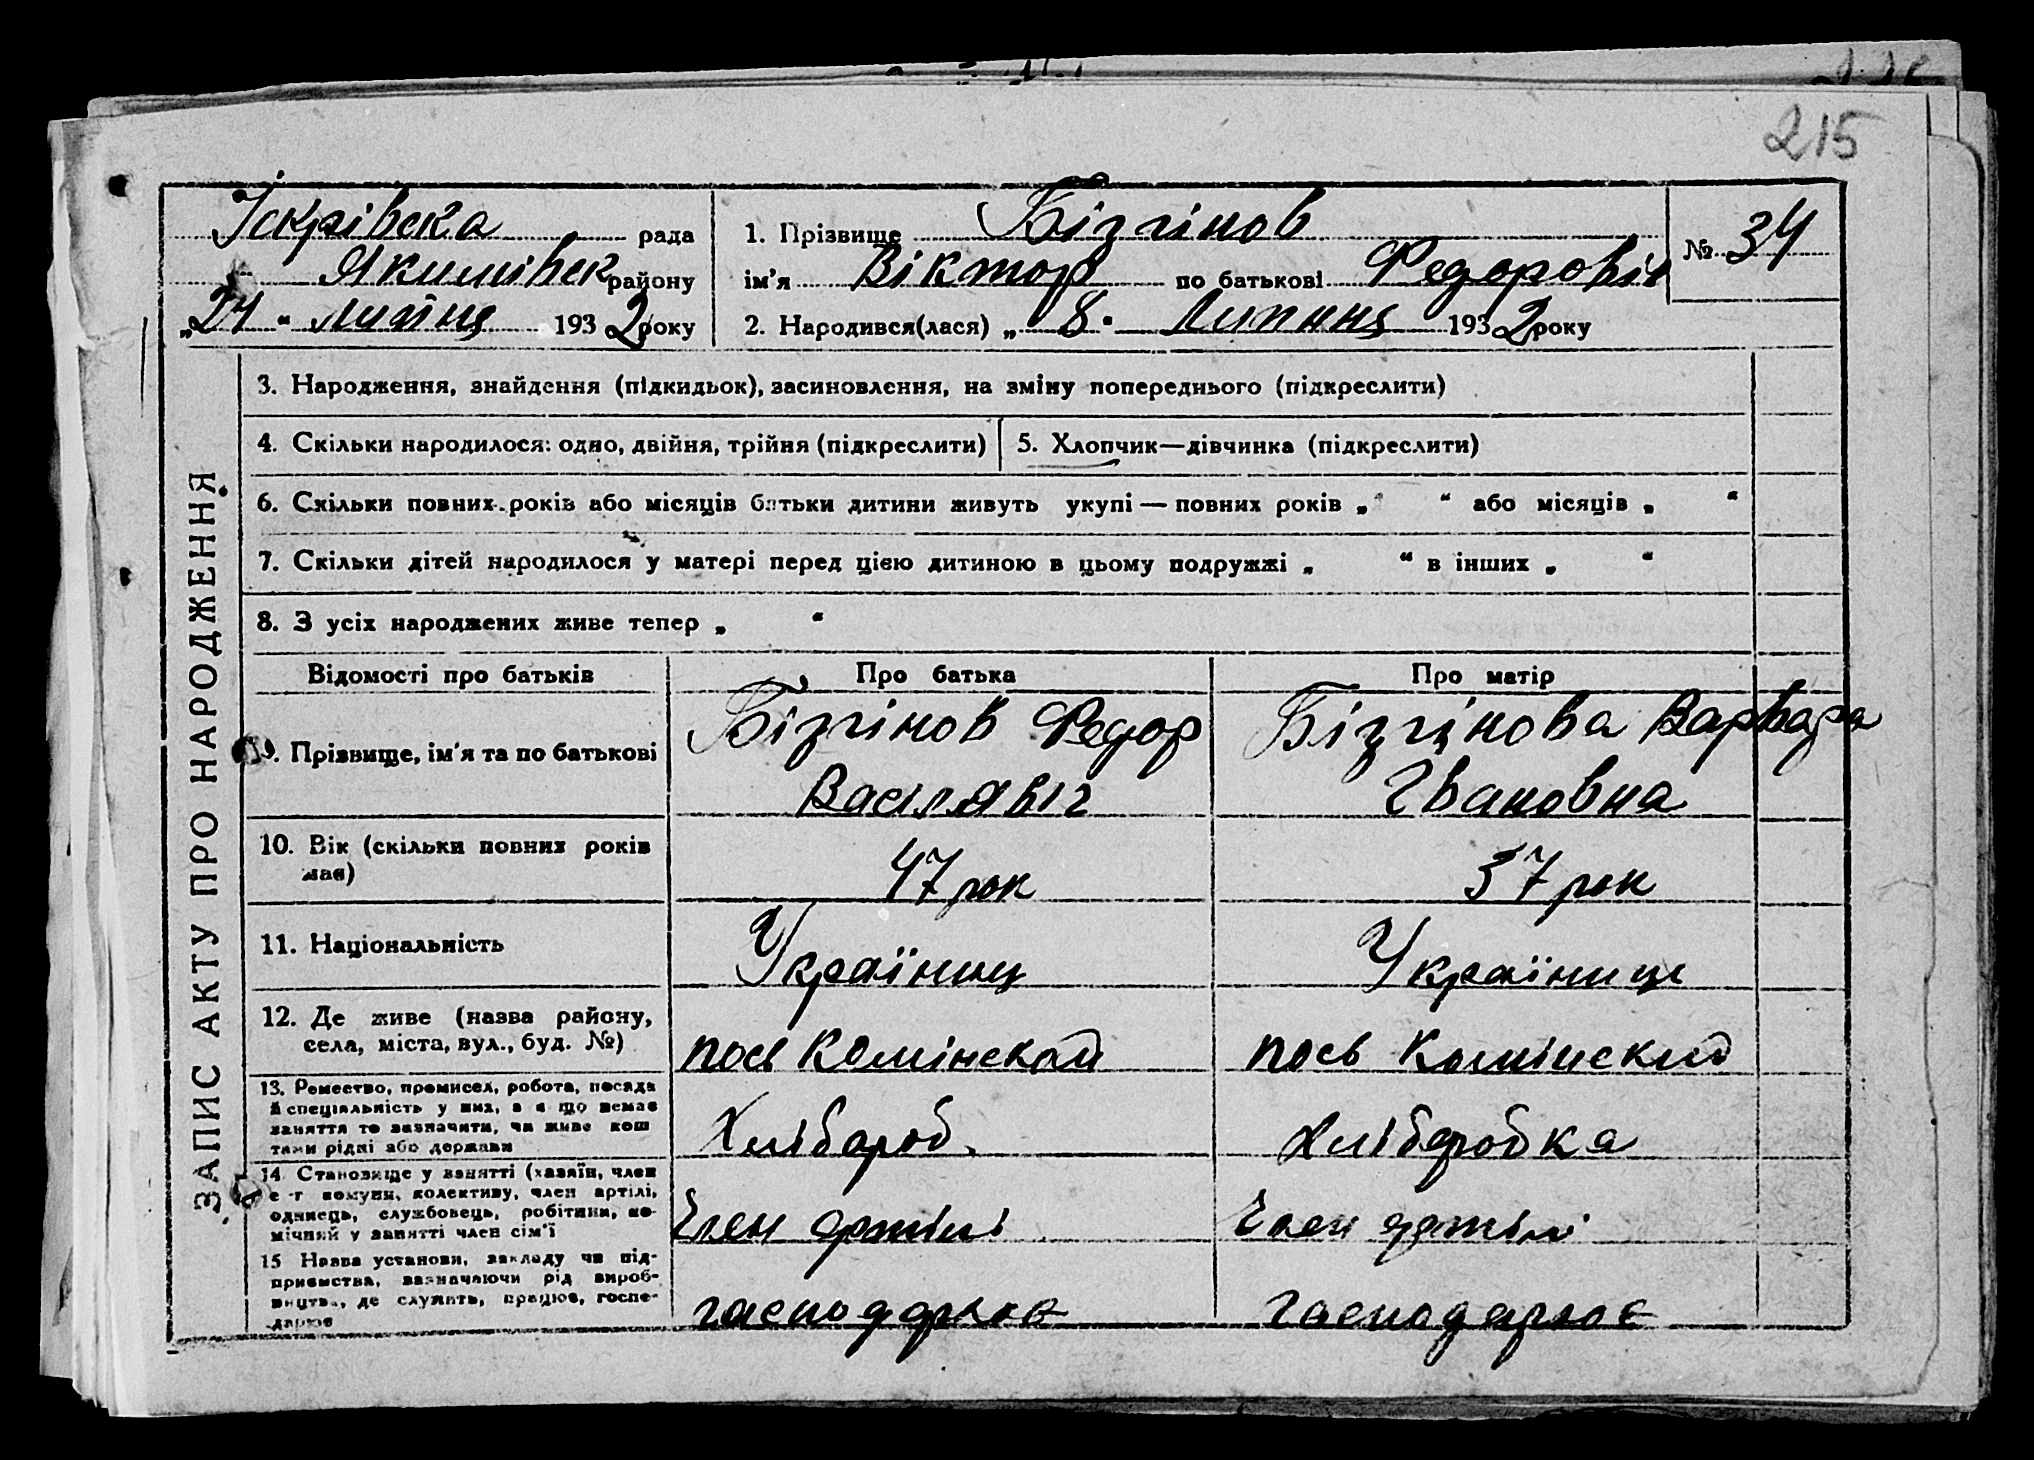 215
Іскрівска рада
Якимівск району
„24“ липня 1932 року
1. Прізвище Бізгінов
ім'я Віктор по батькові Федоровіч
2. Народився(лася) „8“ Липня 1932 року
№ 34
ЗАПИС АКТУ ПРО НАРОДЖЕННЯ
3. Народження, знайдення (підкидьок), засиновлення, на зміну попереднього (підкреслити)
4. Скільки народилося: одно, двійня, трійня (підкреслити)
5. Хлопчик—дівчинка (підкреслити)
6. Скільки повних років або місяців батьки дитини живуть укупі — повних років „ “ або місяців „ “
7. Скільки дітей народилося у матері перед цією дитиною в цьому подружжі „ “ в інших „ “
8. З усіх народжених живе тепер „ “
Відомості про батьків
Про батька
Про матір
9. Прізвище, ім'я та по батькові
Бізгінов Федор
Васілявіч
Бізгінова Варвара
Івановна
10. Вік (скільки повних років
має)
47 рок
37 рок
11. Національність
Українец
Українице
12. Де живе (назва району,
села, міста, вул., буд. №)
пось Комінской
пось Комінский
13. Ремество, промисел, робота, посада
й спеціяльність у них, а я що немає
заняття то зазначити, чи живе кош
тами рідні або держави
Хлібороб.
хліборобка
14 Становище у занятті (хазяїн, член
с-г комуни, колективу, член артілі,
одинець, службовець, робітник, по-
мічний у занятті член сім'ї
Член артілі
Член артілі
15 Назва установи, закладу чи під-
приємства, зазначаючи рід вироб-
ництва, де служить, працює, госпо-
дарює
господарює
господарює